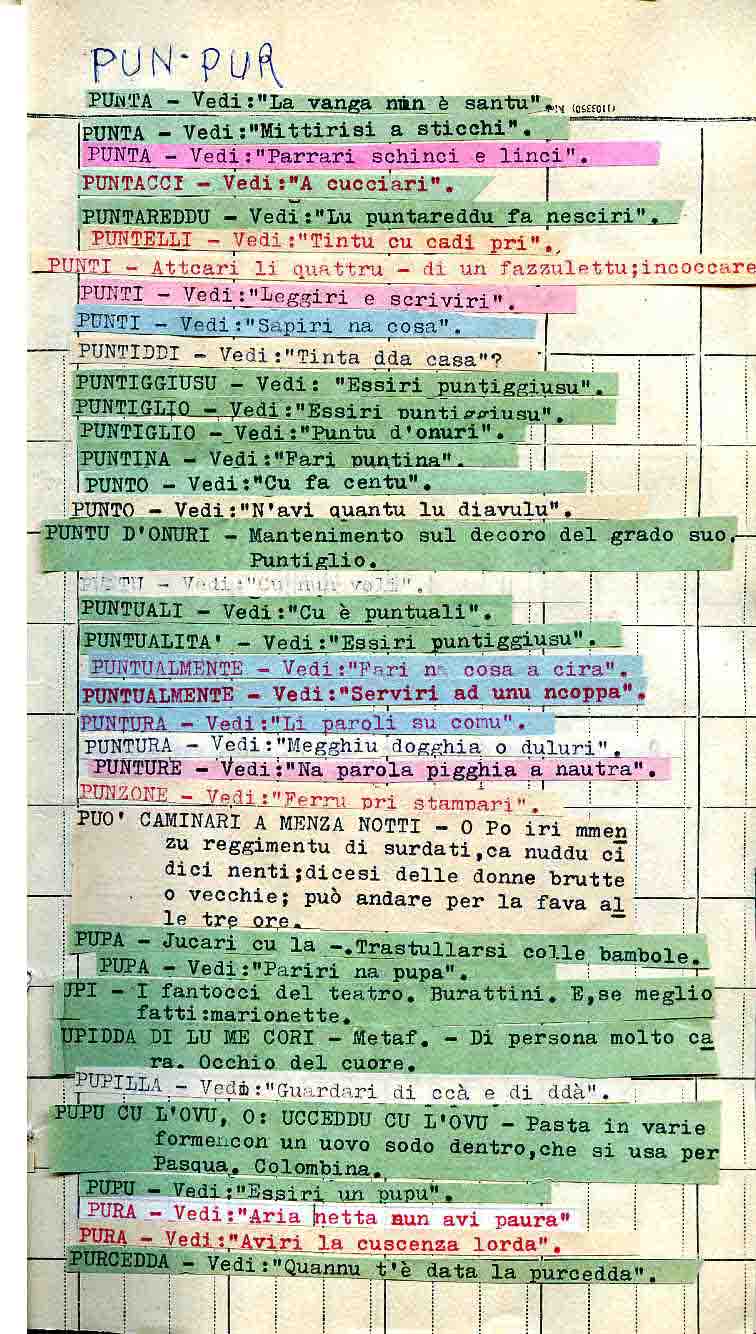 PUN-PUR
PUNTA - Vedi:"La vanga nun è santu".
PUNTA - Vedi:"Mittirisi a sticchi".
PUNTA - Vedi:"Parrari schinci e linci".
PUNTACCI - Vedi:"A cucciari".
PUNTAREDDU - Vedi:"Lu puntareddu fa nesciri".
PUNTELLI - Vedi:"Tintu cu cadi pri".
PUNTI - Attcari li quattru - di un fazzulettu;incoccare
PUNTI - Vedi:"Leggiri e scriviri".
PUNTI - Vedi:"Sapiri na cosa".
PUNTIDDI - Vedi:"Tinta dda casa"?
PUNTIGGIUSU - Vedi: "Essiri puntiggiusu".
PUNTIGLIO - Vedi:"Essiri puntiggiusu".
PUNTIGLIO - Vedi:"Puntu d'onuri".
PUNTINA - Vedi:"Fari puntina".
PUNTO - Vedi:"Cu fa centu".
PUNTO - Vedi:"N'avi quantu lu diavulu".
PUNTU D'ONURI - Mantenimento sul decoro del grado suo.
Puntiglio.
- Vedi:"Cu nun
PUNTUALI - Vedi:"Cu è puntuali".
PUNTUALITA' - Vedi:"Essiri puntiggiusu".
PUNTUALMENTE - Vedi:"Fari na cosa a cira".
PUNTUALMENTE - Vedi:"Serviri ad unu ncoppa".
PUNTURA - Vedi:"Li paroli su comu".
PUNTURA - Vedi:"Megghiu dogghia o duluri".
PUNTURE - Vedi:"Na parola pigghia a nautra".
PUNZONE - Vedi:"Ferru pri stampari".
PUO' CAMINARI A MENZA NOTTI - O Po iri mmen
zu reggimentu di surdati,ca nuddu ci
dici nenti;dicesi delle donne brutte
o vecchie; può andare per la fava al
le tre ore.
PUPA - Jucari cu la -.Trastullarsi colle bambole.
PUPA - Vedi:"Pariri na pupa".
UPI - I fantocci del teatro. Burattini. E,se meglio
fatti:marionette.
UPIDDA DI LU ME CORI - Metaf. - Di persona molto ca
ra. Occhio del cuore.
PUPILLA - Vedi:"Guardari di ccà e di ddà".
PUPU CU L'OVU, O: UCCEDDU CU L'OVU - Pasta in varie
formencon un uovo sodo dentro,che si usa per
Pasqua. Colombina.
PUPU - Vedi:"Essiri un pupu".
PURA - Vedi:"Aria netta nun avi paura"
PURA - Vedi:"Aviri la cuscenza lorda".
PURCEDDA - Vedi:"Quannu t'è data la purcedda".